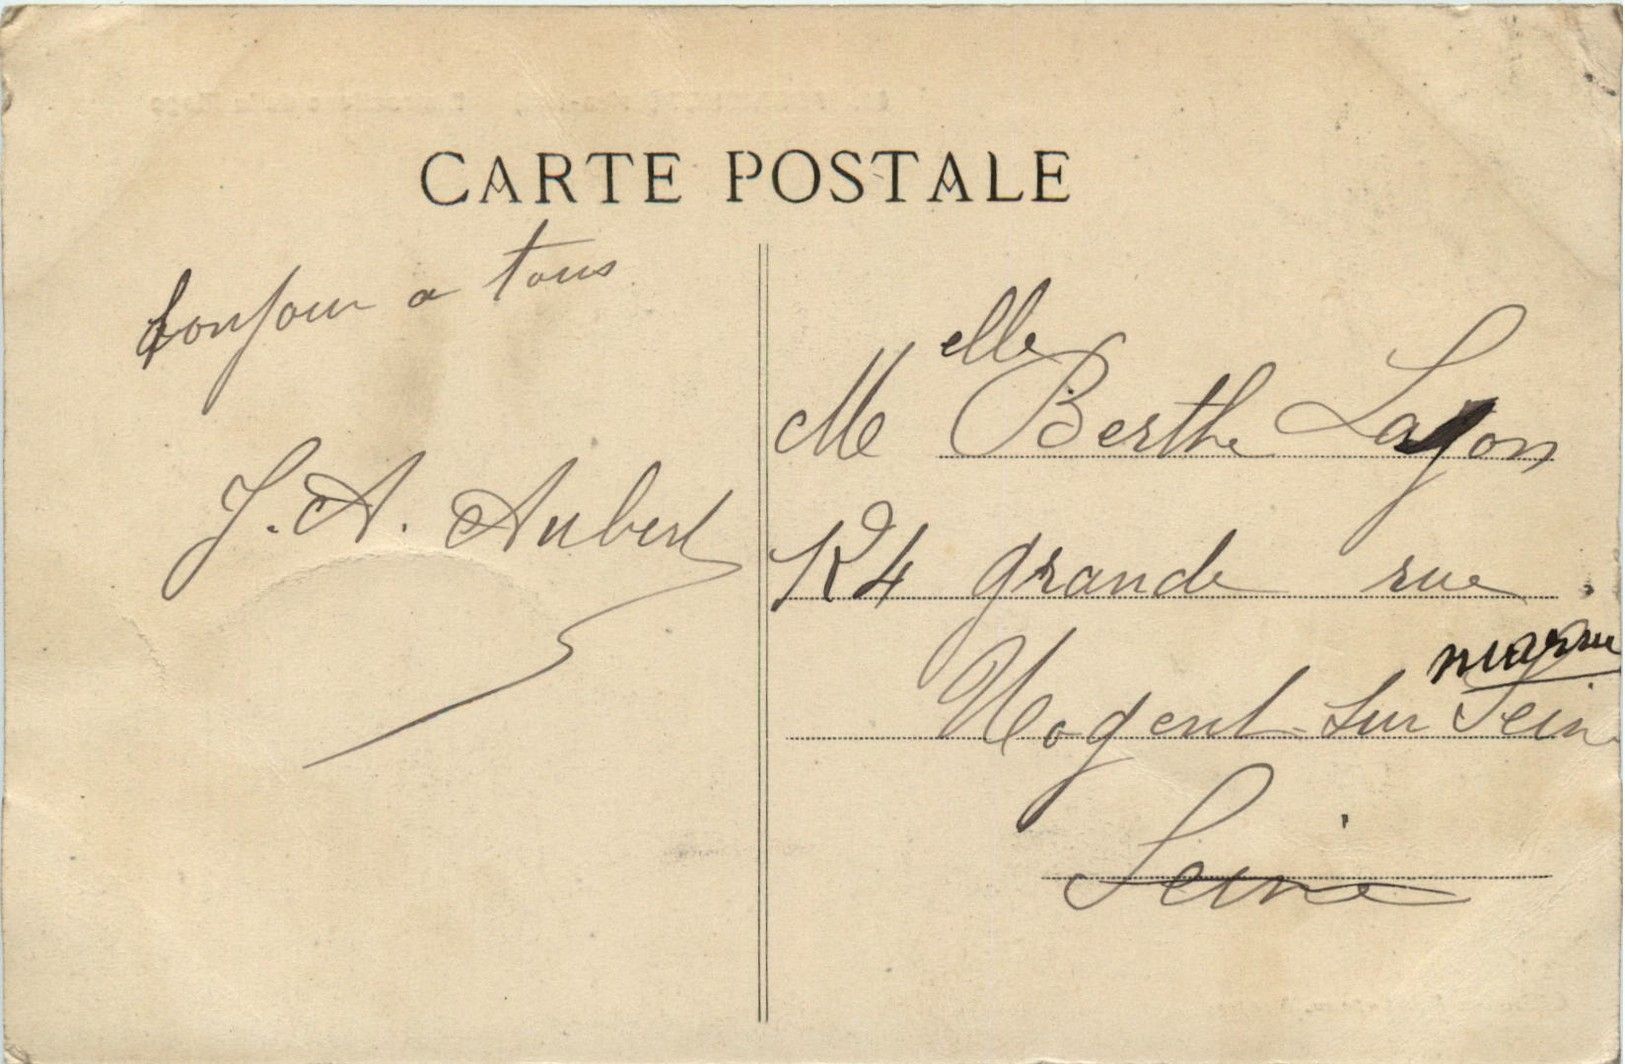 CARTE POSTALE
bonjour a tous
J. A. Aubert
Melle Berthe Layon
grande rue
Nogent-sur Seine
marne
Seine